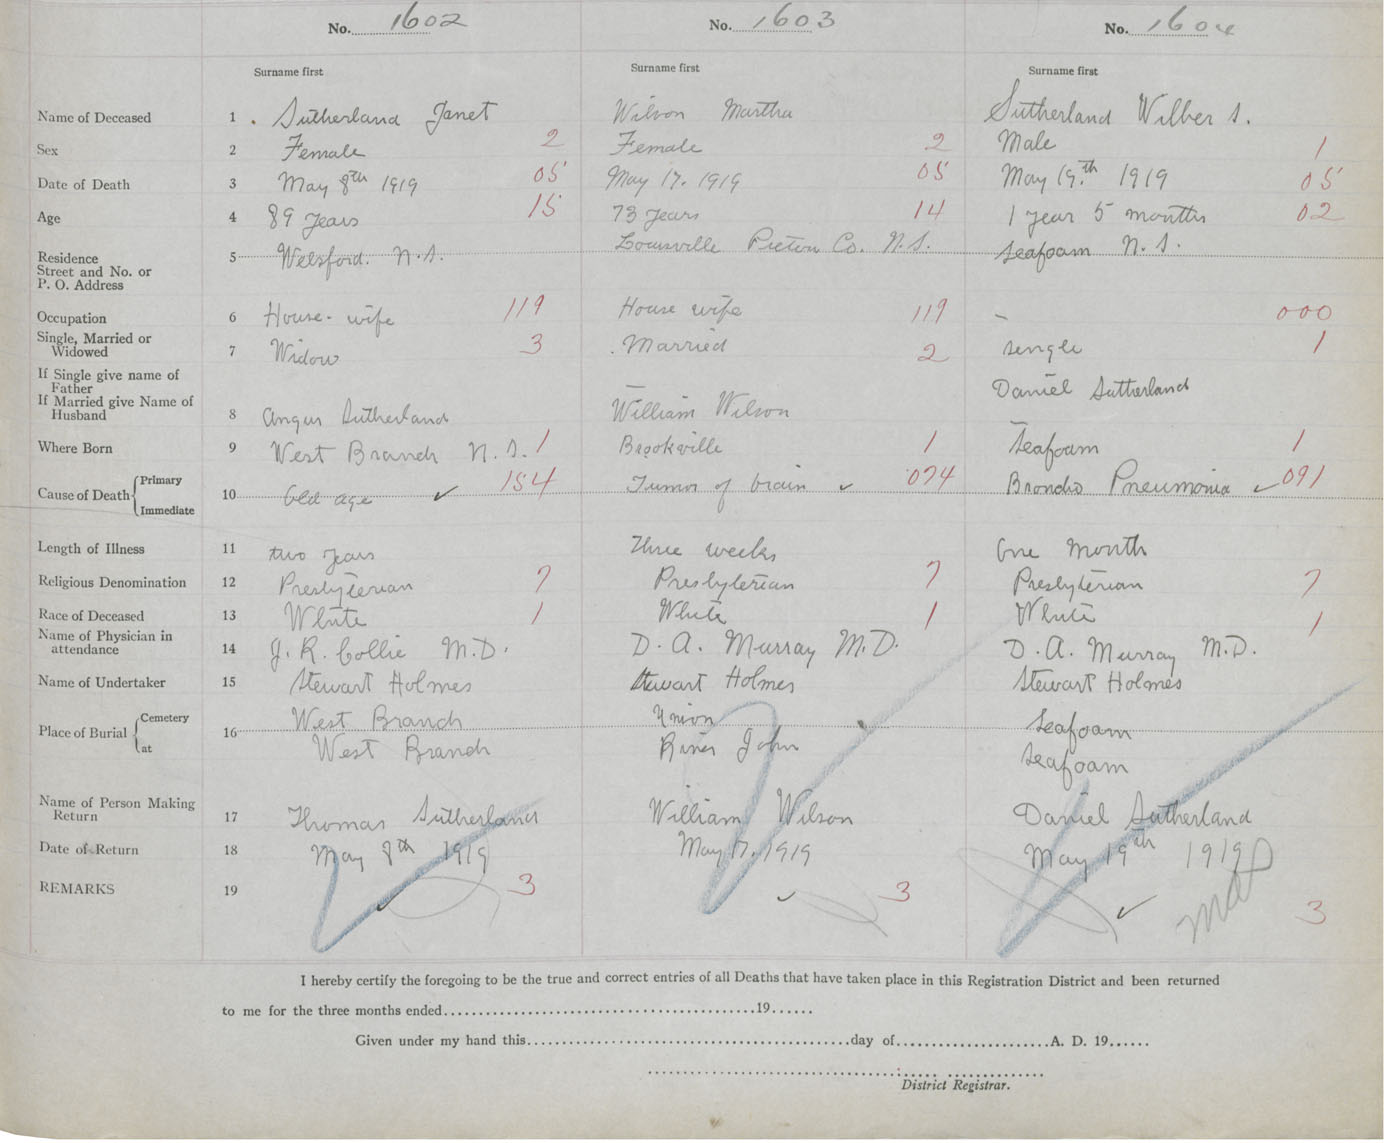 No. 1602 No. 1603 No. 1604
Surname first Surname first Surname first
Name of Deceased 1 Sutherland Janet Wilson Martha Sutherland Wilber S.
Sex 2 Female 2 Female 2 Male 1
Date of Death 3 May 8th 1919 05 May 17. 1919 05 May 19th 1919 05
Age 4 89 years 15 73 years 14 1 year 5 months 02
Residence
Street and No. or
P. O. Address 5 Welsford. N.S. Louisville Pictou Co. N.S. Seafoam N.S.
Occupation 6 House-wife 119 House wife 119 – 000
Single, Married or
Widowed 7 Widow 3 Married 2 single 1
If Single give name of
Father Daniel Sutherland
If Married give Name of
Husband 8 Angus Sutherland William Wilson
Where Born 9 West Branch N.S. 1 Brookville 1 Seafoam 1
Cause of Death { Primary
Immediate 10 Old age ✓ 154 Tumor of brain ✓ 074 Broncho Pneumonia ✓ 091
Length of Illness 11 two years Three weeks One month
Religious Denomination 12 Presbyterian 7 Presbyterian 7 Presbyterian 7
Race of Deceased 13 White 1 White 1 White 1
Name of Physician in
attendance 14 J. R. Collie M.D. D. A. Murray M.D. D. A. Murray M.D.
Name of Undertaker 15 Stewart Holmes Stewart Holmes Stewart Holmes
Place of Burial { Cemetery 16 West Branch Union Seafoam
at West Branch River John Seafoam
Name of Person Making
Return 17 Thomas Sutherland William Wilson Daniel Sutherland
Date of Return 18 May 8th 1919 May 17. 1919 May 19th 1919
REMARKS 19 ✓ 3 ✓ 3 ✓ 3
I hereby certify the foregoing to be the true and correct entries of all Deaths that have taken place in this Registration District and been returned
to me for the three months ended..........19......
Given under my hand this..........day of..........A. D. 19......
District Registrar.